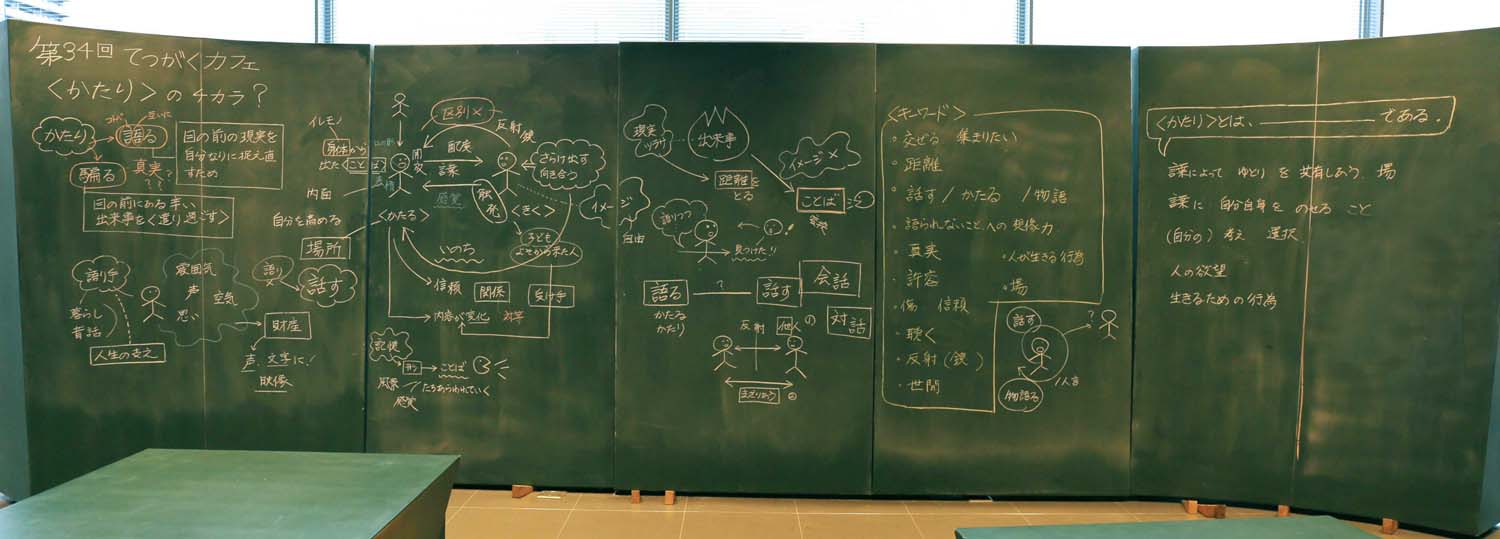 第34回 てつがくカフェ
〈かたり〉のチカラ?
かたり
語る
騙る
真実?
???
目の前の現実を
自分なりに捉え直
すため
目の前にある辛い
出来事をく遣り過ごす>
語り手
暮らし
昔話
人生の支え
雰囲気
声
空気
思い
財産
声、文字に!
映像
語り
話す
イレモノ
身体から
出た ことば
内面
自分を高める
場所
区別×
反射 鏡
応答
言葉
感覚
触発
さらけ出す
向き合う
イメージ
自由
〈かたる〉
〈きく〉
子ども
よそから来た人
いのち
信頼
関係
受け手
内容が変化
対等
記憶
ことば
たちあらわれていく
風景
感覚
現実
出来事
イメージ×
距離を
とる
ことば
語りつつ
見つけた!!
語る
?
話す
会話
かたる
かたり
の
対話
反射
他人
まざりあう
<キーワード>
・交ぜる 集まりたい
・距離
・話す / かたる / 物語
・語られないことへの想像力
・真実
・人が生きる行為
・許容
・場
・傷 信頼
・聴く
・反射(鏡)
・世間
話す
?
物語る
〈かたり〉とは、＿＿＿＿である.
言葉によって ゆとり を 共有しあう 場
言葉に 自分自身を のせる こと
(自分の) 考え 選択
人の欲望
生きるための行為